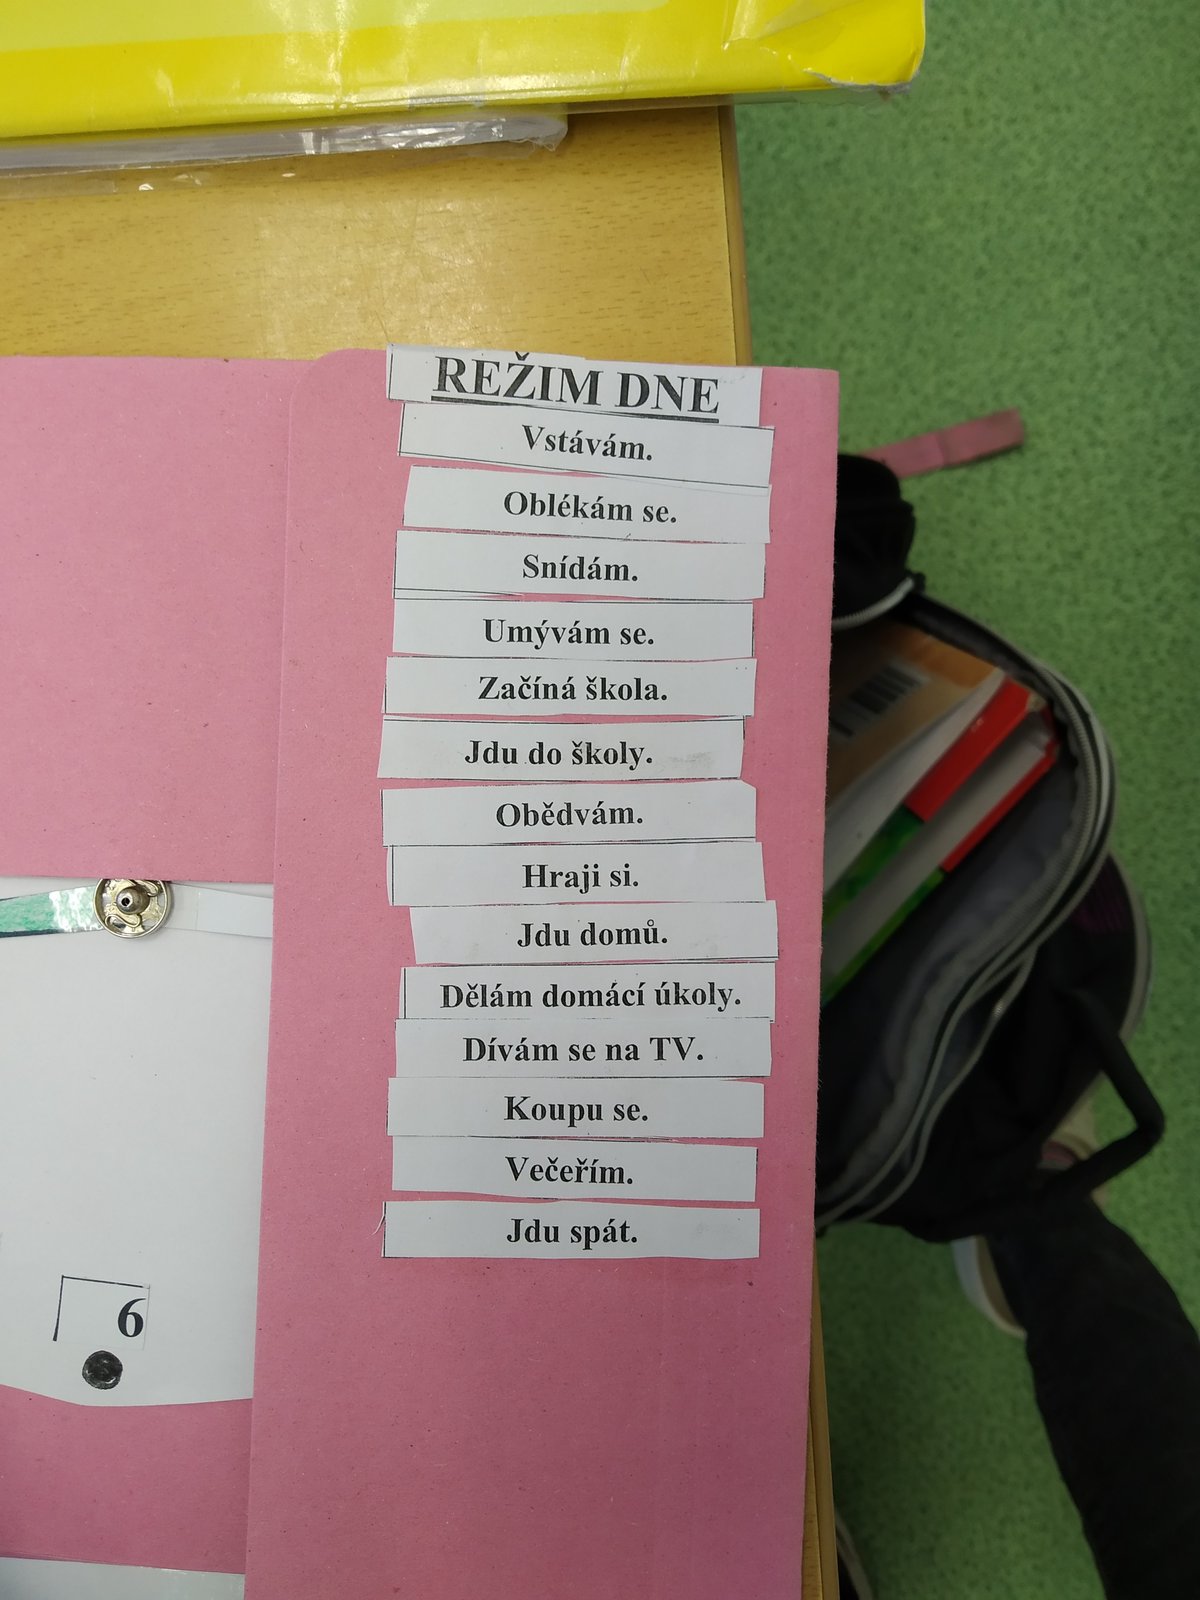 REŽIM DNE
Vstávám.
Oblékám se.
Snídám.
Umývám se.
Začíná škola.
Jdu do školy.
Obědvám.
Hraji si.
Jdu domů.
Dělám domácí úkoly.
Dívám se na TV.
Koupu se.
Večeřím.
Jdu spát.
6